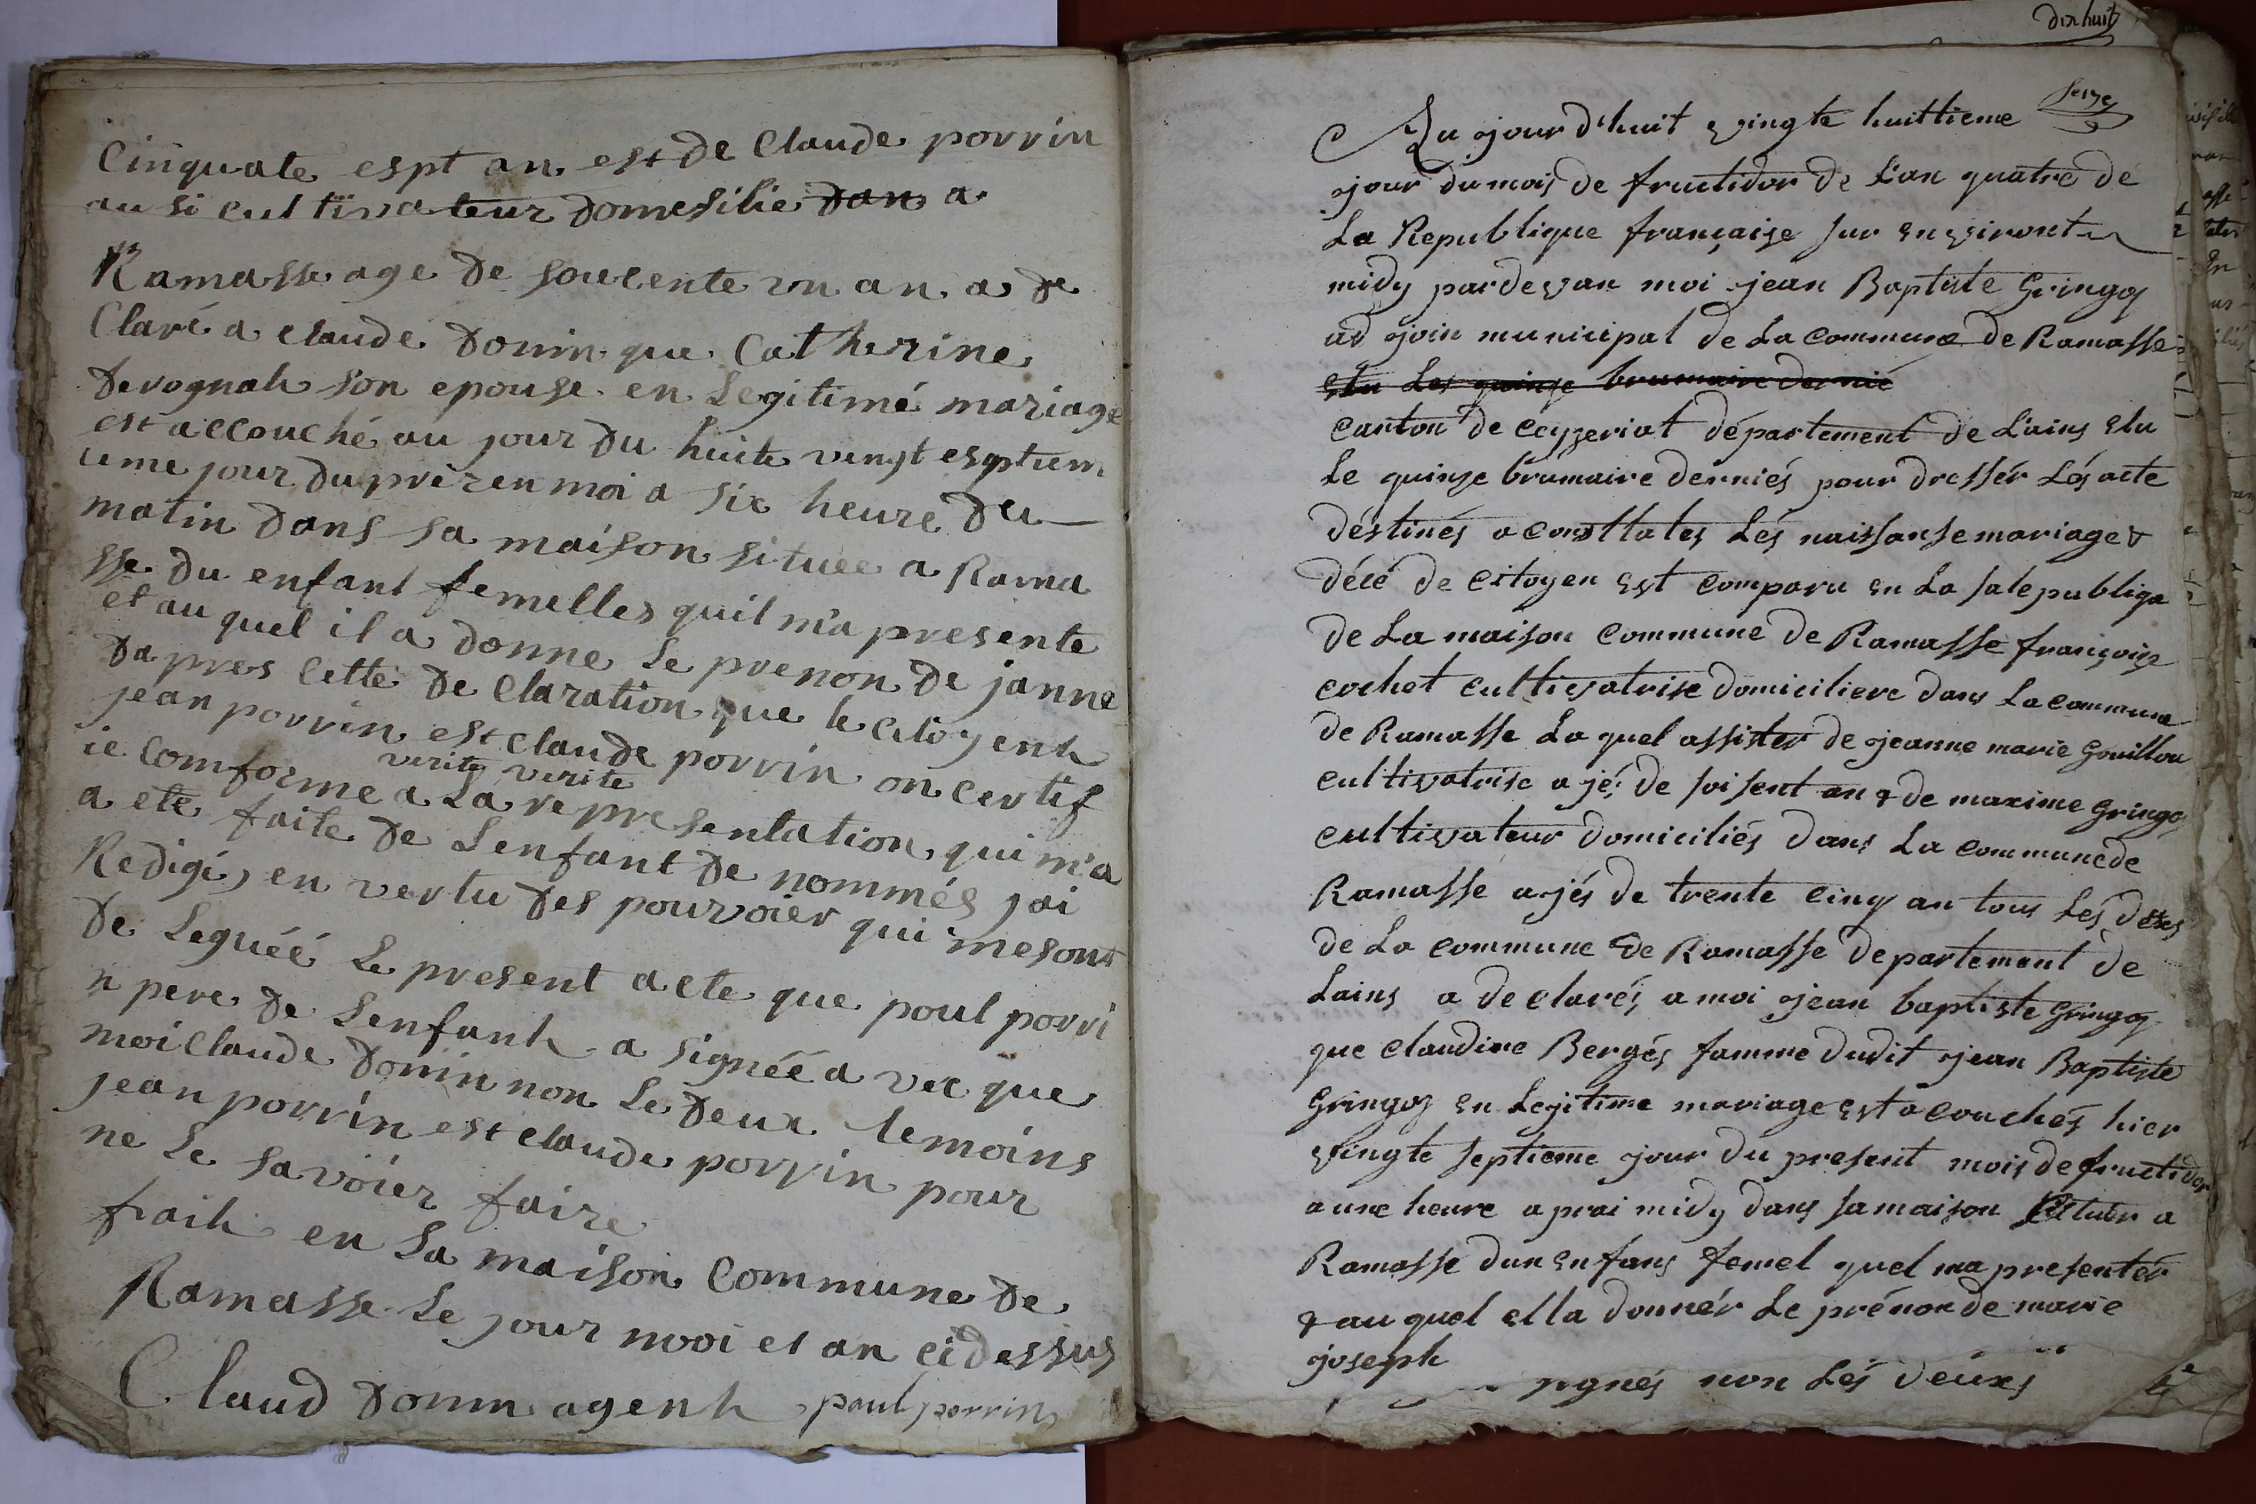 Cinquate espt an est de Claude porrin
ausi cultivateur domesilie dan a
Ramasse age de souecente un an a de
Claré a Claude donin que Catherine
devognah son epouse en Legitimé mariage
est accouché au jour du huite vingt esptiem
ieme jour du prezen moi a six heure du
matin dans sa maison situee a Rama
sse du enfant femelles quil m'a presente
et au quel il a donne Le prenon de janne
da pres Cette de Claration que le Citoyenh
jean porrin est Claude porrin on Certif
verite verite
ie Comforme a La representation qui m'a
a ete faite de Lenfant de nommés jai
Redigé, en vertu des pourvoier qui mesont
de Leguéé Le present acte que poul porri
n pere de Lenfanh a signéé a vec que
moi Claude donin non Le deux temoins
jean porrin est Claude porrin pour
ne Le savoier faire
faih en La maison Commune de
Ramasse Le jour mooi et an cidessus
Claud donin agenh paul porrin
dix huit
seize
Au jour d'huit vingte huittieme
jour du mois de fructidor de L'an quatre de
La Republique française sur environt
midy pardevan moi jean Baptiste Gringoz
ad join municipal de La commune de Ramasse
elu Les quinze brumaire dernié
canton de ceyzeriat département de L'ains elu
Le quinze brumaire derniés pour dressér Lés acte
déstinés a consttates Lés naissanse mariage &
décé de citoyen est comparu en La sale publiqe
de La maison commune de Ramasse françoise
cochet cultivatrise domiciliere dans La commune
de Ramasse La quel assister de jeanne marie Gouillon
cultivatrise a jés de soisent an & de maxime Gringoz
cultivateur domiciliés dans La commune de
Ramasse a jés de trente cinq an tous Lés deux
de La commune de Ramasse departement de
Lains a declarés a moi jean baptiste Gringoz
que claudine Bergés famme dudit jean Baptiste
Gringoz en Lejitime mariage est acouchés hier
vingte septieme jour du present mois de fructidor
a une heure a prai midy dans sa maison situer a
Ramasse dun enfans femel quel ma presentér
& au quel ella donnér Le prénon de marie
joseph
non Lés deuxs